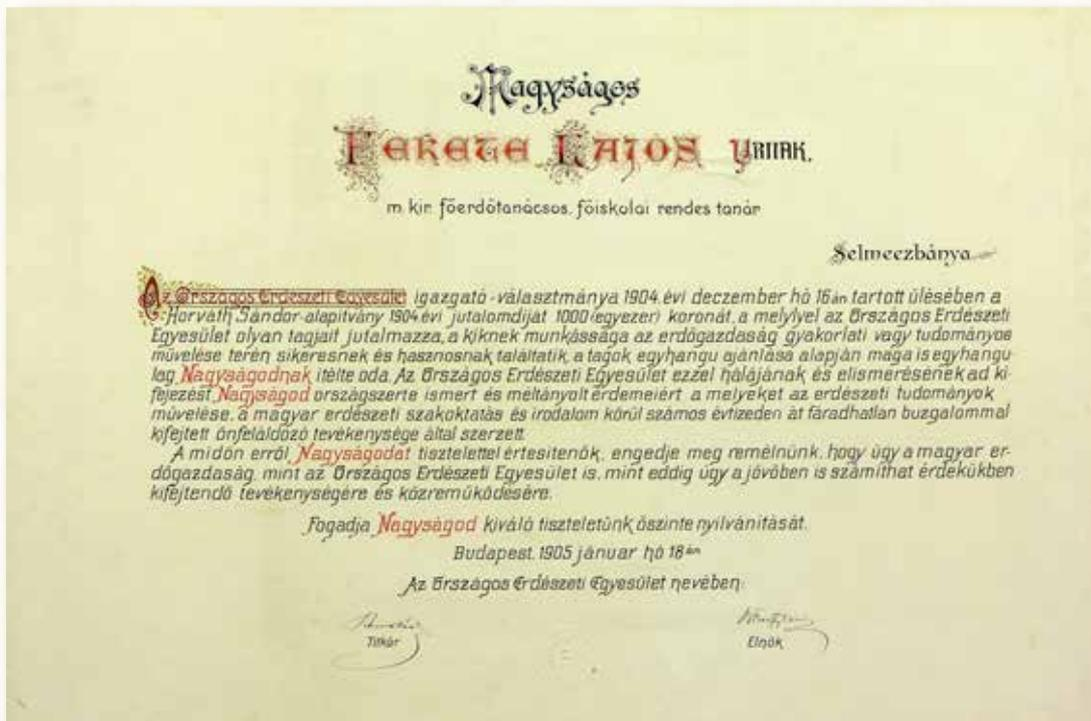 Nagyságos
FEKETE LAJOS URNAK,
m. kir. főerdőtanácsos, főiskolai rendes tanár
Selmeczbánya
Az Országos Erdészeti Egyesület igazgató-választmánya 1904. évi deczember hó 16án tartott ülésében a
Horváth Sándor-alapítvány 1904 évi jutalomdíját 1000 (egyezer) koronát, a melylyel az Országos Erdészeti
Egyesület olyan tagjait jutalmazza, a kiknek munkássága az erdőgazdaság gyakorlati vagy tudományos
művelése terén sikeresnek és hasznosnak találtatik, a tagok egyhangu ajánlása alapján maga is egyhangu
lag Nagyságodnak itélte oda. Az Országos Erdészeti Egyesület ezzel hálájának és elismerésének ad ki-
fejezést Nagyságod országszerte ismert és méltányolt érdemeiért a melyeket az erdészeti tudományok
művelése, a magyar erdészeti szakoktatás és irodalom körül számos évtizeden át fáradhatlan buzgalommal
kifejtett önfeláldozó tevékenysége által szerzett.
A midőn erről Nagyságodat tisztelettel értesítenők, engedje meg remélnünk, hogy úgy a magyar er-
dőgazdaság, mint az Országos Erdészeti Egyesület is, mint eddig úgy a jövőben is számíthat érdekükben
kifejtendő tevékenységére és közreműködésére.
Fogadja Nagyságod kiváló tiszteletünk őszinte nyilvánítását.
Budapest, 1905 január hó 18án
Az Országos Erdészeti Egyesület nevében:
Titkár
Elnök